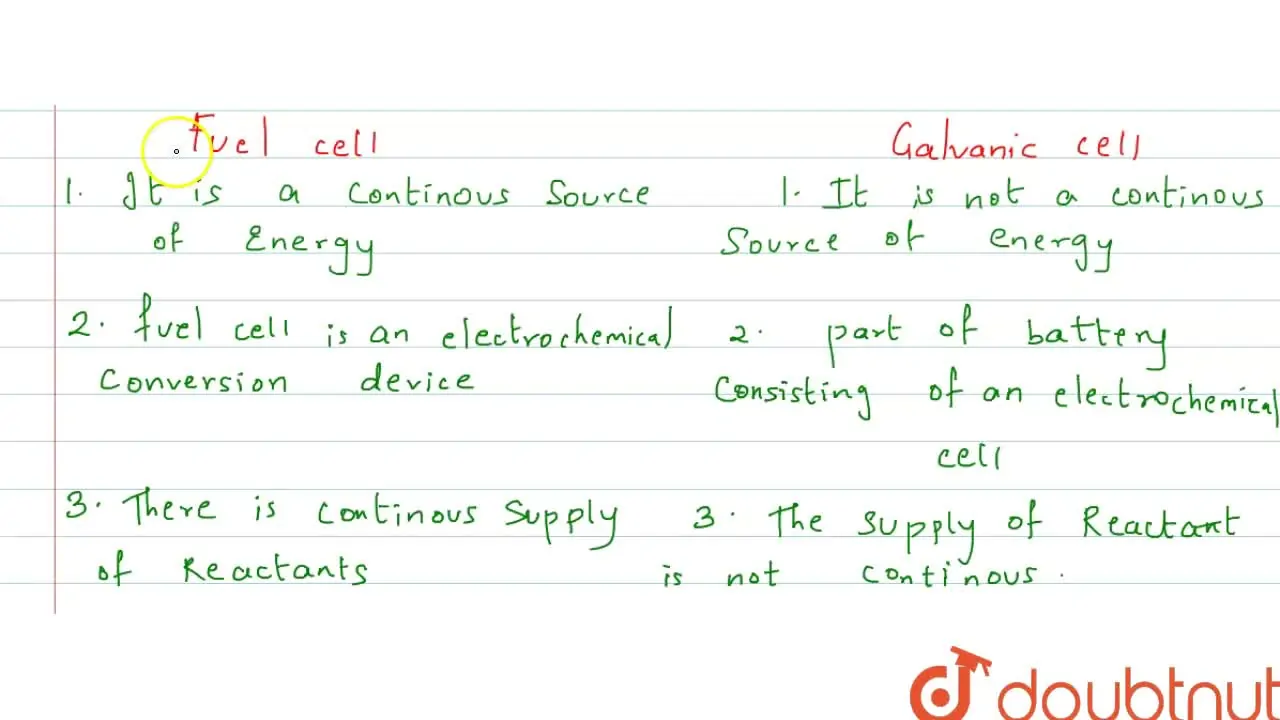 Fuel cell
1. It is a continous source
of Energy
2. fuel cell is an electrochemical
conversion device
3. There is continous supply
of Reactants
Galvanic cell
1. It is not a continous
source of energy
2. part of battery
Consisting of an electrochemical
cell
3. The supply of Reactant
is not continous.
doubtnut